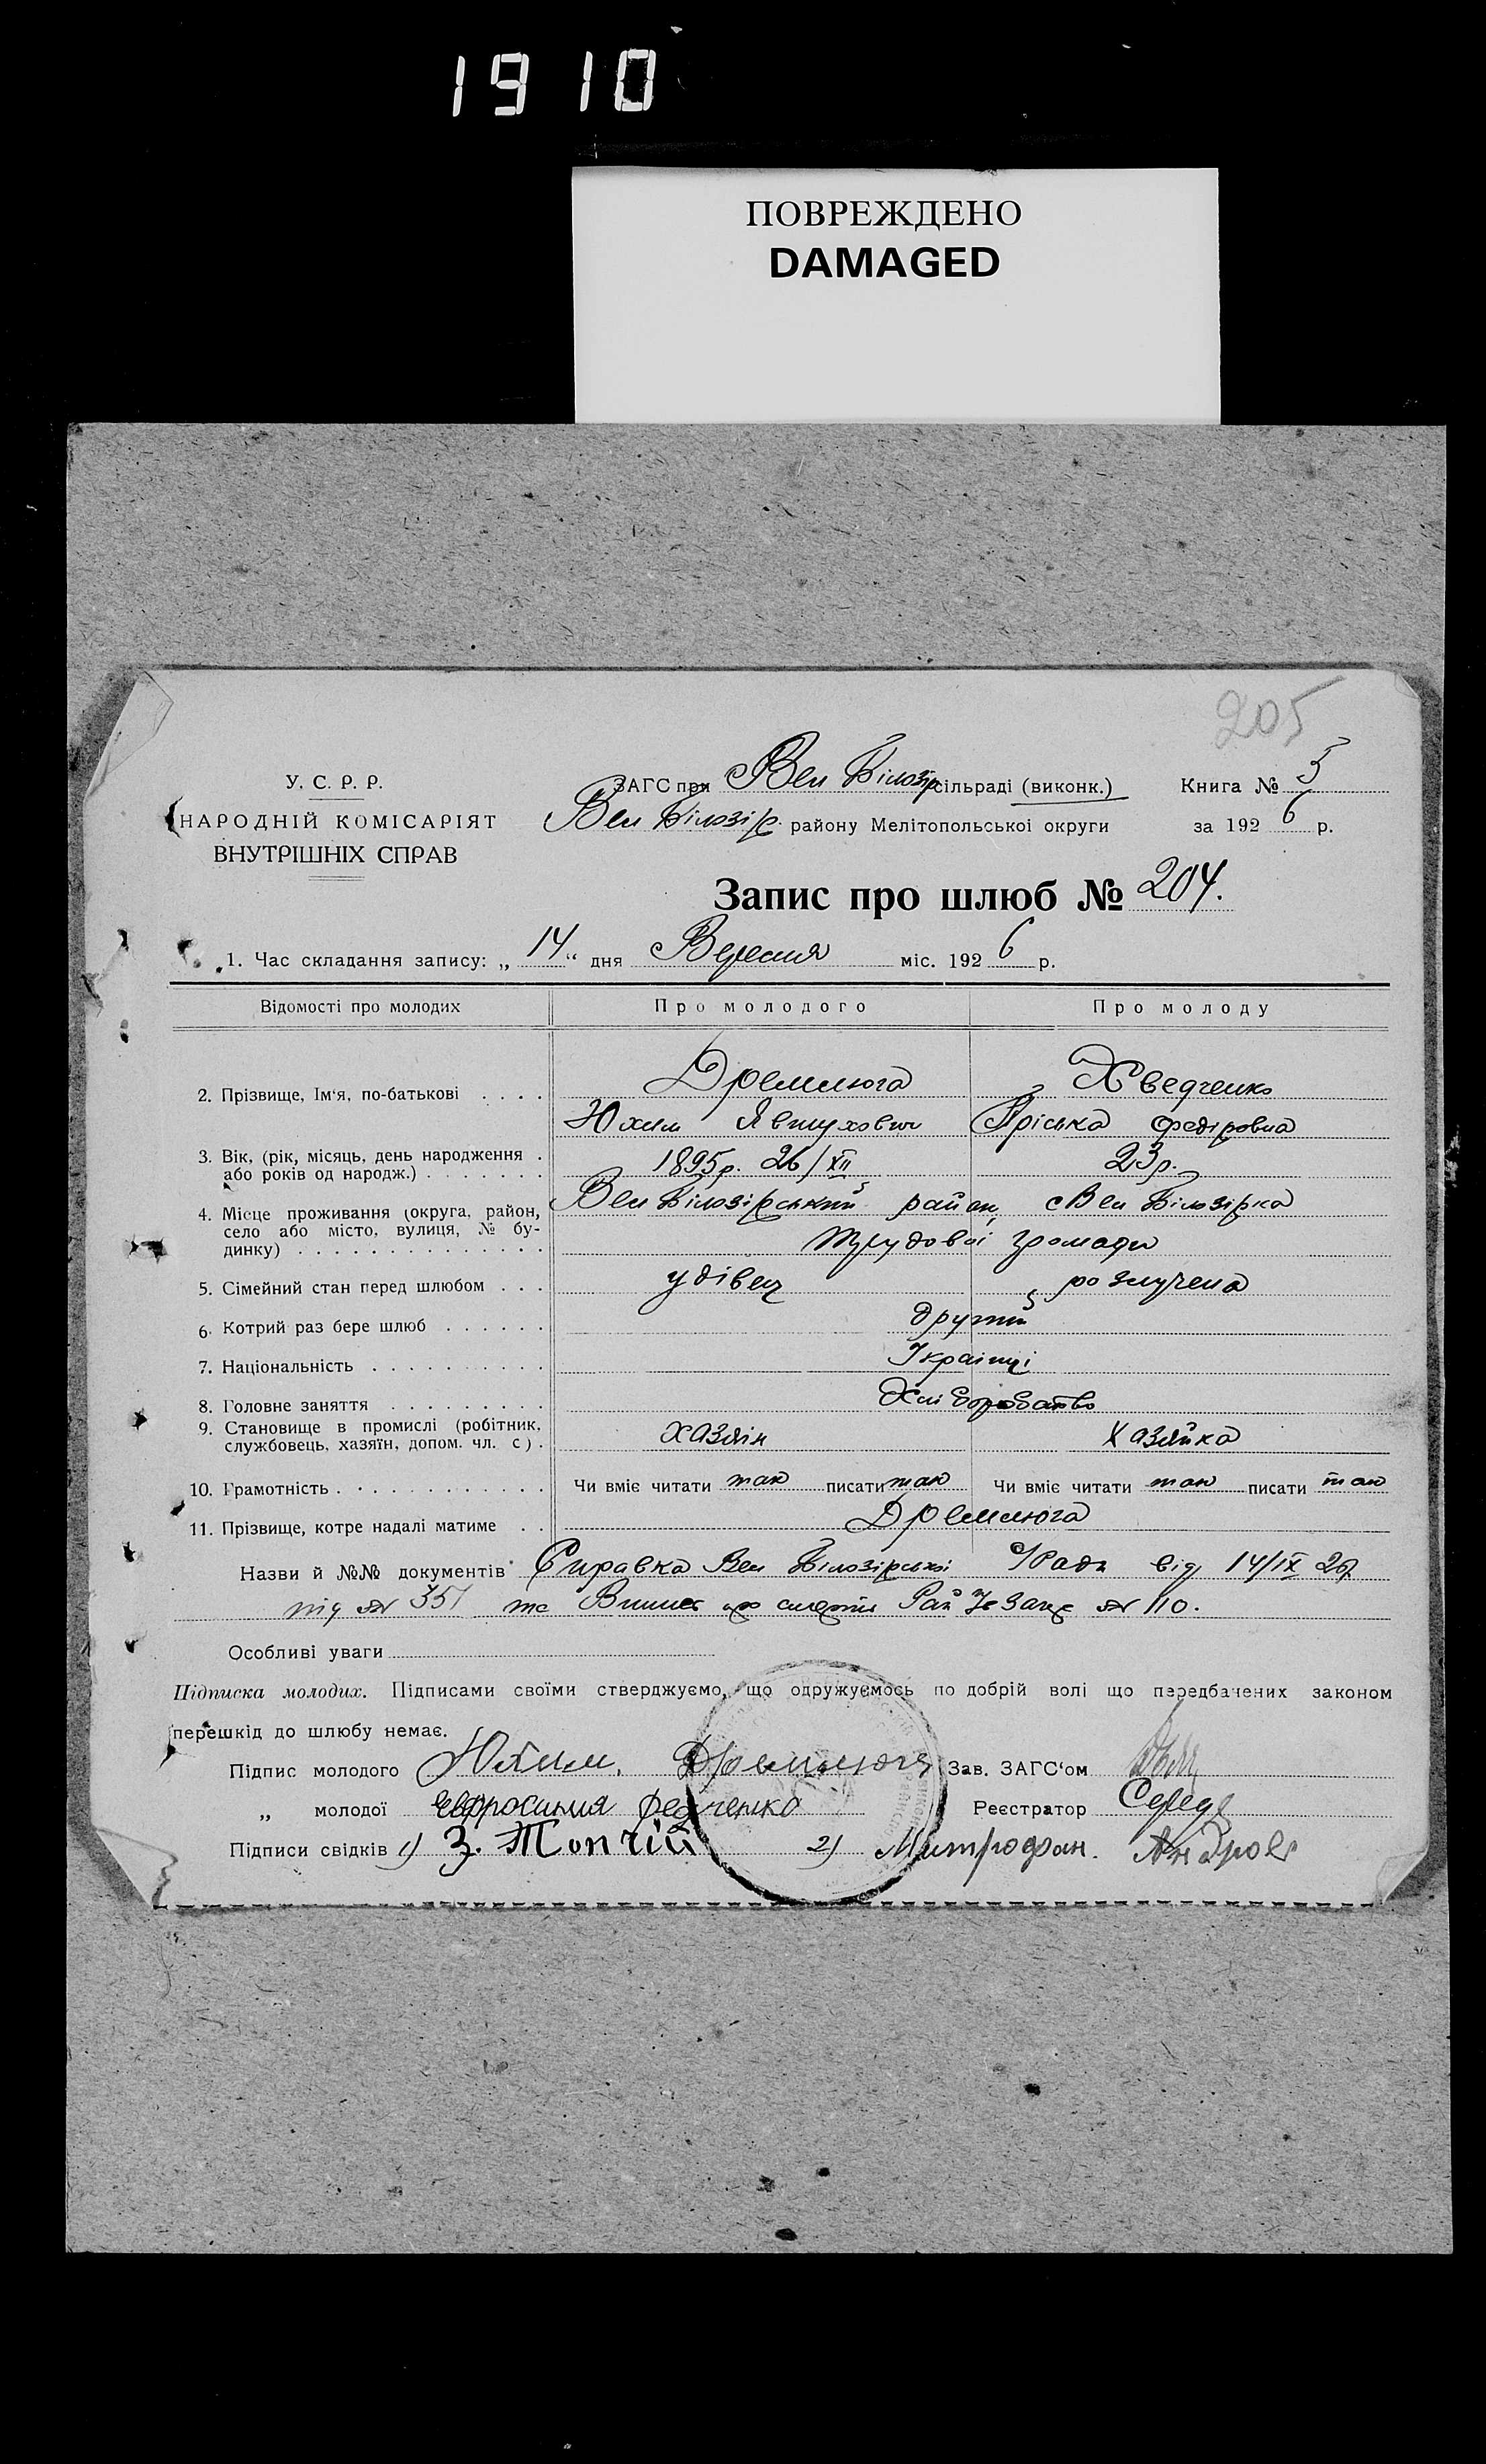 1910
ПОВРЕЖДЕНО
DAMAGED
205
У. С. Р. Р.
НАРОДНІЙ КОМІСАРІЯТ
ВНУТРІШНІХ СПРАВ
ЗАГС при Вел Білозір сільраді (виконк.) Книга № 5
Вел Білозір. району Мелітопольської округи за 1926 р.
Запис про шлюб № 204.
1. Час складання запису: „14“ дня Вересня міс. 1926 р.
Відомості про молодих Про молодого Про молоду
2. Прізвище, Ім'я, по-батькові . . . . Дремлюга Хведченко
Юхим Явтухович Пріська Федіровна
3. Вік, (рік, місяць, день народження . 1895р. 26/XII 23р.
або років од народж.) . . . . . . .
4. Місце проживання (округа, район, Вел Білозірський район, с Вел Білозірка
село або місто, вулиця, № бу-
динку) . . . . . . . . . . . . . . Трудової громади
5. Сімейний стан перед шлюбом . . . удівец розлучена
6. Котрий раз бере шлюб . . . . . . другий
7. Національність . . . . . . . . . . Україньці
8. Головне заняття . . . . . . . . . Хліборобство
9. Становище в промислі (робітник, хазяін Хазяйка
службовець, хазяїн, допом. чл. с) .
10. Грамотність . . . . . . . . . . . . Чи вміє читати так писати так Чи вміє читати так писати так
11. Прізвище, котре надалі матиме . . Дремлюга
Назви й №№ документів Справка Вел Білозірської С/Ради від 14/IX 26р
під № 351 та Виписка про смерть Рай № 110.
Особливі уваги
Підписка молодих. Підписами своїми стверджуємо, що одружуємось по добрій волі що передбачених законом
перешкід до шлюбу немає.
Підпис молодого Юхим. Дремлюга Зав. ЗАГС'ом
„ молодої Евфросиния Федченко Реєстратор Середа
Підписи свідків 1) З. Топчій 2) Митрофан.